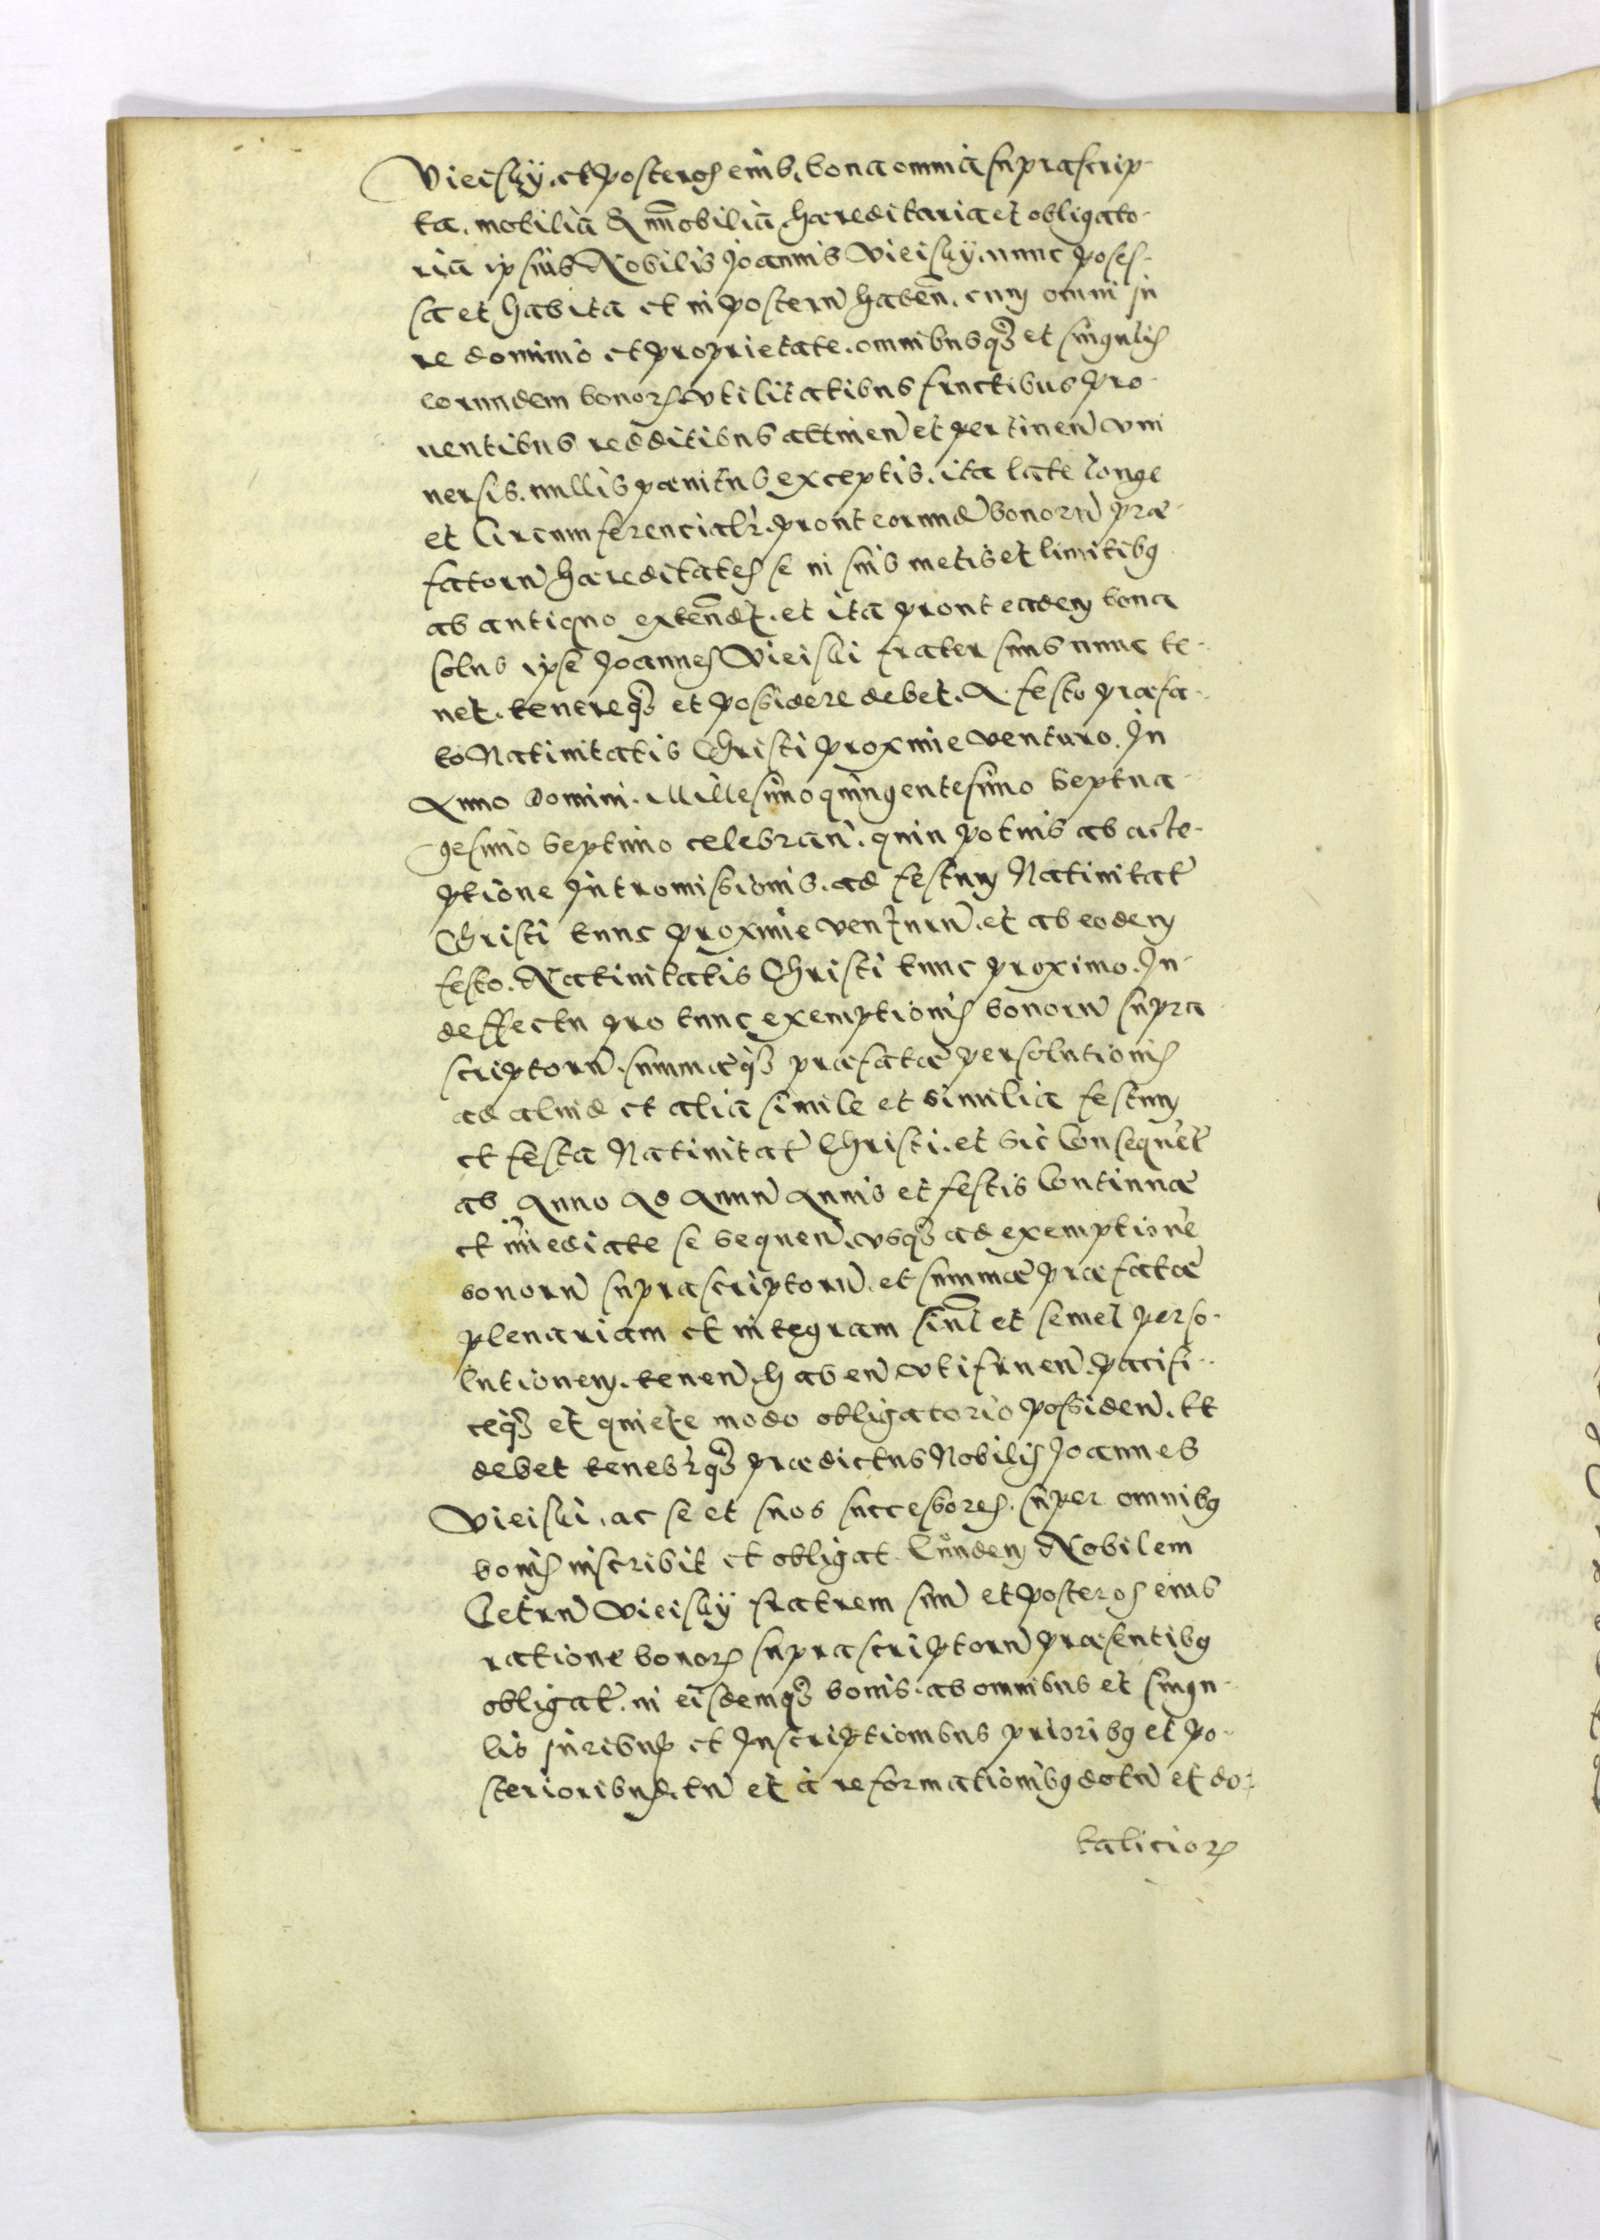 Vieisky, et posteros eius, bona omnia suprascrip-
ta, mobilia & im̄obilia, haereditaria et obligato-
ria ipsius Nobilis Joannis Vieisky, nunc poses-
sa et habita et in posterũ habeñ. cum omni iu
re dominio et proprietate. omnibusq₃ et singulis
eorumdem bonoꝝ vtilitatibus fructibus pro-
uentibus redditibus attineñ et pertineñ vni
uersis. nullis paenitus exceptis. ita late longe
et circumferencialr̃. prout eorundẽ bonorũ prae-
fatorũ haereditates se in suis metis et limitibꝯ
ab antiquo extendũt. et ita prout eadem bona
solus ipse Joannes Vieiski frater suus nunc te-
net. tenereq₃ et possidere debet. A festo praefa-
to Natiuitatis Christi proxime venturo. In
Anno Domini. Millesimo quingentesimo Septua-
gesimo Septimo celebrañ. quin potius ab acce-
ptione Intromissionis. ad festum Natiuitat̃
Christi tunc proxime venturũ. et ab eodem
festo. Natiuitatis Christi tunc proximo. In
deffectu pro tunc exemptionis bonorũ supra
scriptorũ. summaeq₃ praefatae persolutionis
ad aliud et alia simile et similia festum
et festa Natiuitat̃ Christi. et sic consequẽt̃
ab Anno Ad Annũ Annis et festis continuae
et im̃ediate se sequeñ. vsq₃ ad exemptionẽ
bonorũ suprascriptorũ. et summae praefatae
plenariam et integram simĩ et semel perso-
lutionem. teneñ. habeñ vtifrueñ. pacifi-
ceq₃ et quiete modo obligatorio possideñ. Et
debet tenebr̃q₃ praedictus Nobilis Joannes
Vieiski, ac se et suos successores. super omnibꝯ
bonis inscribit et obligat. Eundem Nobilem
Petrũ Vieisky fratrem suũ et posteros eius
ratione bonoꝝ suprascriptorũ praesentibꝯ
obligat̃. in eisdemq₃ bonis. ab omnibus et singu-
lis iuribus et Inscriptionibus prioribꝯ et po-
sterioribus. tũ et à reformationibꝯ dotũ et do-
talicioꝝ